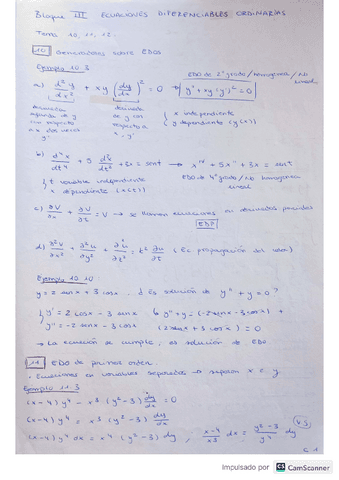 Bloque III ECUACIONES DIFERENCIABLES ORDINARIAS
Tema 10, 11, 12.
10 Generalidades sobre EDOS
Ejemplo 10.3
a) d²y/dx² + xy (dy/dx)² = 0 → y'' + xy (y')² = 0
EDO de 2º grado / homogenea / No lineal
derivada de y con respecto a x
{ x independiente
{ y dependiente (y(x))
b) d⁴x/dt⁴ + 5 d²x/dt² + 3x = sent → x^IV + 5x'' + 3x = sent
EDO 4º grado / No homogenea
lineal
{ t variable independiente
x dependiente (x(t))
c) ∂V/∂u + ∂V/∂t = V → se llaman ecuaciones en derivadas parciales
EDP
d) ∂²u/∂x² + ∂²u/∂y² + ∂²u/∂t² = t² ∂u/∂t (Ec propagación del calor)
Ejemplo 10.10
y = 2 senx + 3 cosx, ¿ Es solución de y'' + y = 0 ?
{ y' = 2 cosx - 3 senx
y'' + y = (-2 senx - 3 cosx) +
y'' = -2 senx - 3 cosx
(2 senx + 3 cosx) = 0
→ La ecuación se cumple, es solución de EDO
11 EDO de primer orden.
· Ecuaciones en variables separadas → separar x e y.
Ejemplo 11.3
(x-4) y⁴ - x³ (y²-3) dy/dx = 0
(x-4) y⁴ = x³ (y²-3) dy/dx
(x-4) y⁴ dx = x³ (y²-3) dy, (x-4)/x³ dx = (y²-3)/y⁴ dy (V.S)
Impulsado por CS CamScanner